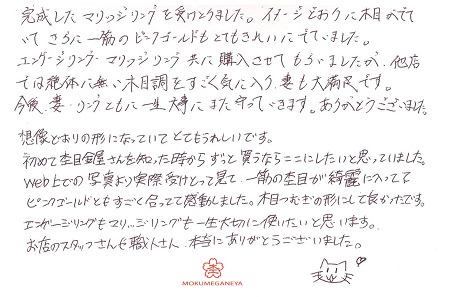 完成したマリッジリングを受けとりました。イメージどおりに木目がでて
いて さらに一筋のピンクゴールドもとてもきれいにでていました。
エンゲージリング・マリッジリング 共に購入させてもらいましたが、他店
では絶体に無い木目調をすごく気に入り、妻も大満足です。
今後、妻・リングともに一生大事にまた守っていきます。ありがとうございました。
想像どおりの形になっていて とてもうれしいです。
初めて杢目金屋さんを知った時から ずっと買うならここにしたいと思っていました。
Web上での写真より実際受けとって見て、一筋の杢目が綺麗に入ってて
ピンクゴールドともすごく合ってて感動しました。木目つむぎの形にして良かったです。
エンゲージリングもマリッジリングも一生大切に使いたいと思います。
お店のスタッフさんも職人さん、本当にありがとうございました。
MOKUMEGANEYA